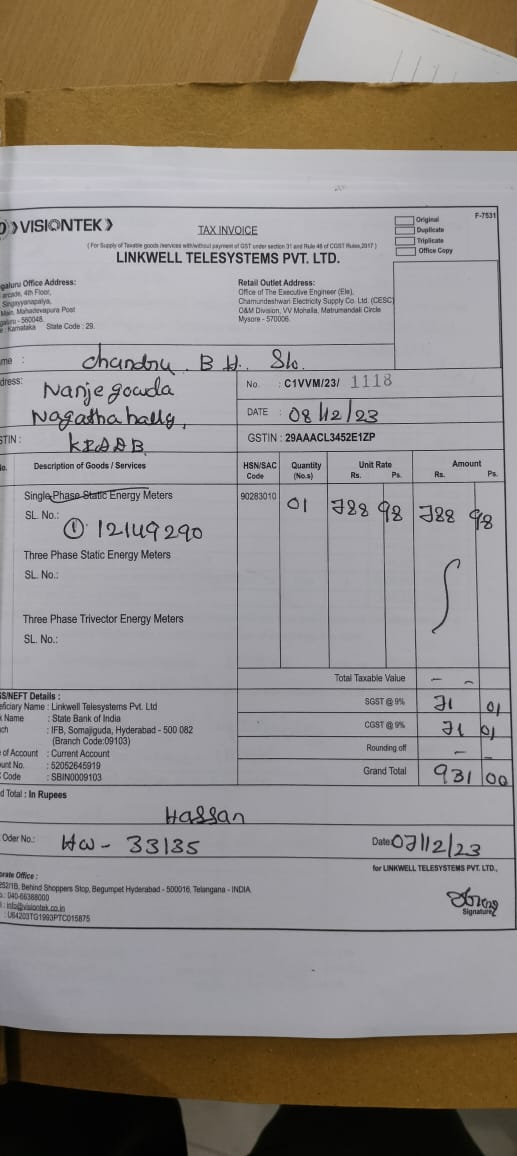 VISIONTEK
TAX INVOICE
(For Supply of Taxable goods /services with/without payment of GST under section 31 and Rule 46 of CGST Rules,2017)
LINKWELL TELESYSTEMS PVT. LTD.
Original
Duplicate
Triplicate
Office Copy
F-7531
galuru Office Address:
arcade, 4th Floor,
Singayyanapalya,
Main, Mahadevapura Post
galuru - 560048.
: Karnataka State Code : 29.
Retail Outlet Address:
Office of The Executive Engineer (Ele),
Chamundeshwari Electricity Supply Co. Ltd. (CESC)
O&M Division, VV Mohalla, Matrumandali Circle
Mysore - 570006.
me : Chandru. B H. S/o.
dress: Nanjegowda
Nagathahally,
No. : C1VVM/23/ 1118
DATE : 08/12/23
STIN :
GSTIN : 29AAACL3452E1ZP
o. Description of Goods / Services HSN/SAC Code Quantity (No.s) Unit Rate Rs. Ps. Amount Rs. Ps.
Single Phase Static Energy Meters 90283010 01 788 98 788 98
SL. No.: ① 12149290
Three Phase Static Energy Meters
SL. No.:
Three Phase Trivector Energy Meters
SL. No.:
Total Taxable Value - -
SGST @ 9% 71 01
CGST @ 9% 71 01
Rounding off - -
Grand Total 931 00
GS/NEFT Details :
eficiary Name : Linkwell Telesystems Pvt. Ltd
k Name : State Bank of India
nch : IFB, Somajiguda, Hyderabad - 500 082
(Branch Code:09103)
e of Account : Current Account
ount No. : 52052645919
Code : SBIN0009103
d Total : In Rupees
Hassan
Oder No.: HW - 33135 Date: 07/12/23
orate Office :
252/1B, Behind Shoppers Stop, Begumpet Hyderabad - 500016, Telangana - INDIA
.: 040-66388000
: info@visiontek.co.in
: U64203TG1993PTC015875
for LINKWELL TELESYSTEMS PVT. LTD.,
Signature